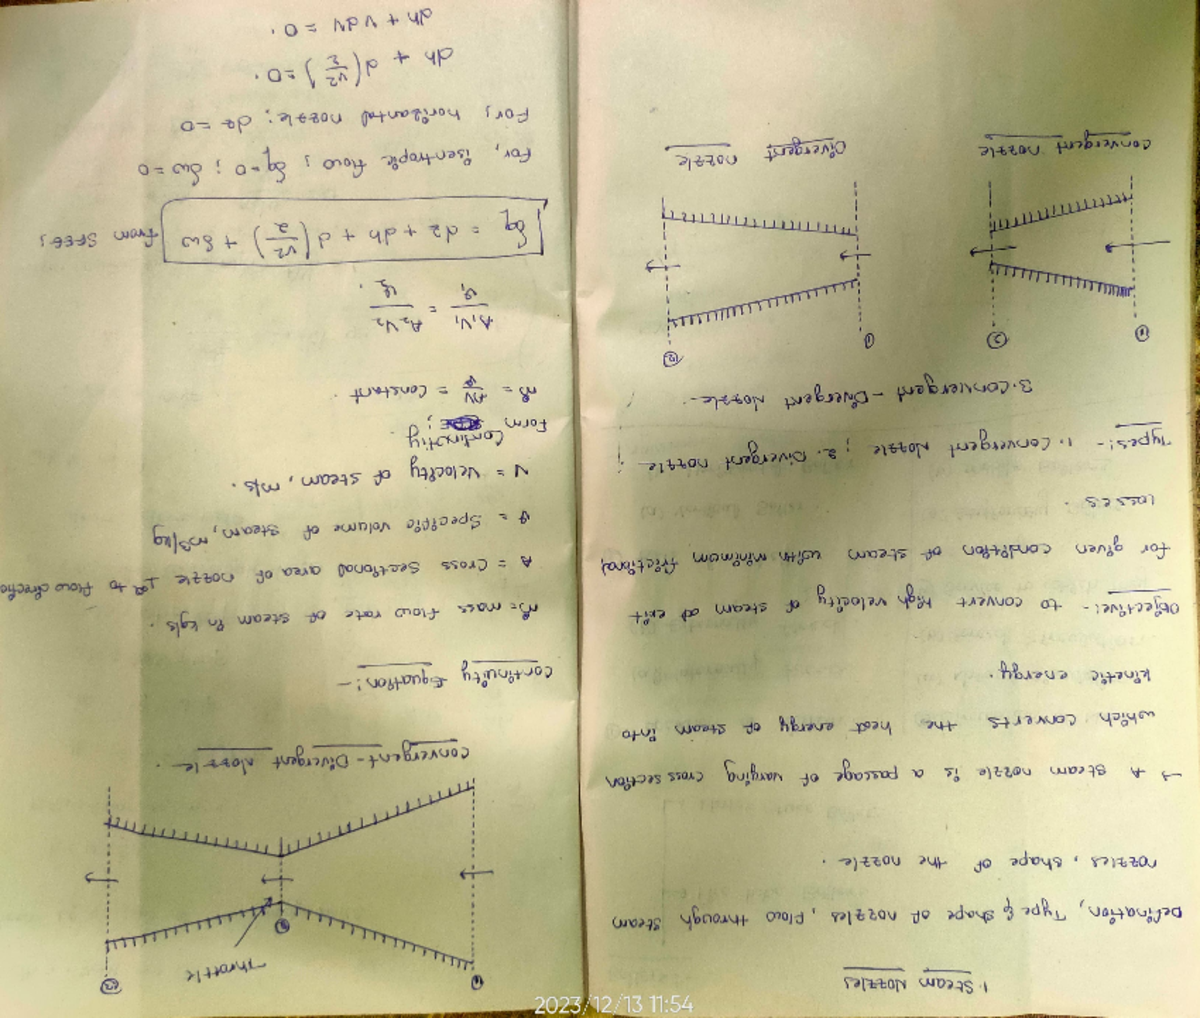 1. Steam Nozzles
Defination, Type & shape of nozzles, Flow through steam
nozzles, shape of the nozzle.
→ A steam nozzle is a passage of varying cross section
which converts the heat energy of steam into
kinetic energy.
Objective:- to convert high velocity of steam at exit
for given condition of steam with minimum frictional
losses.
Types:- 1. Convergent Nozzle ; 2. Divergent nozzle
3. Convergent - Divergent Nozzle.
① ② ① ②
Convergent nozzle Divergent nozzle
① Throttle ②
Convergent - Divergent Nozzle.
Continuity Equation:-
ṁ = mass flow rate of steam in kg/s.
A = Cross Sectional area of nozzle ⊥r to flow directio
v = Specific volume of steam, m³/kg
V = Velocity of steam, m/s.
Form Continutiy.
ṁ = AV/v = Constant.
A₁V₁/v₁ = A₂V₂/v₂.
from SFEE; δq = dz + dh + d(V²/2) + δw
For, isentropic flow; δq=0; δw=0
For, horizantal nozzle; dz=0
dh + d(V²/2)=0.
dh + vdv = 0.
2023/12/13 11:54